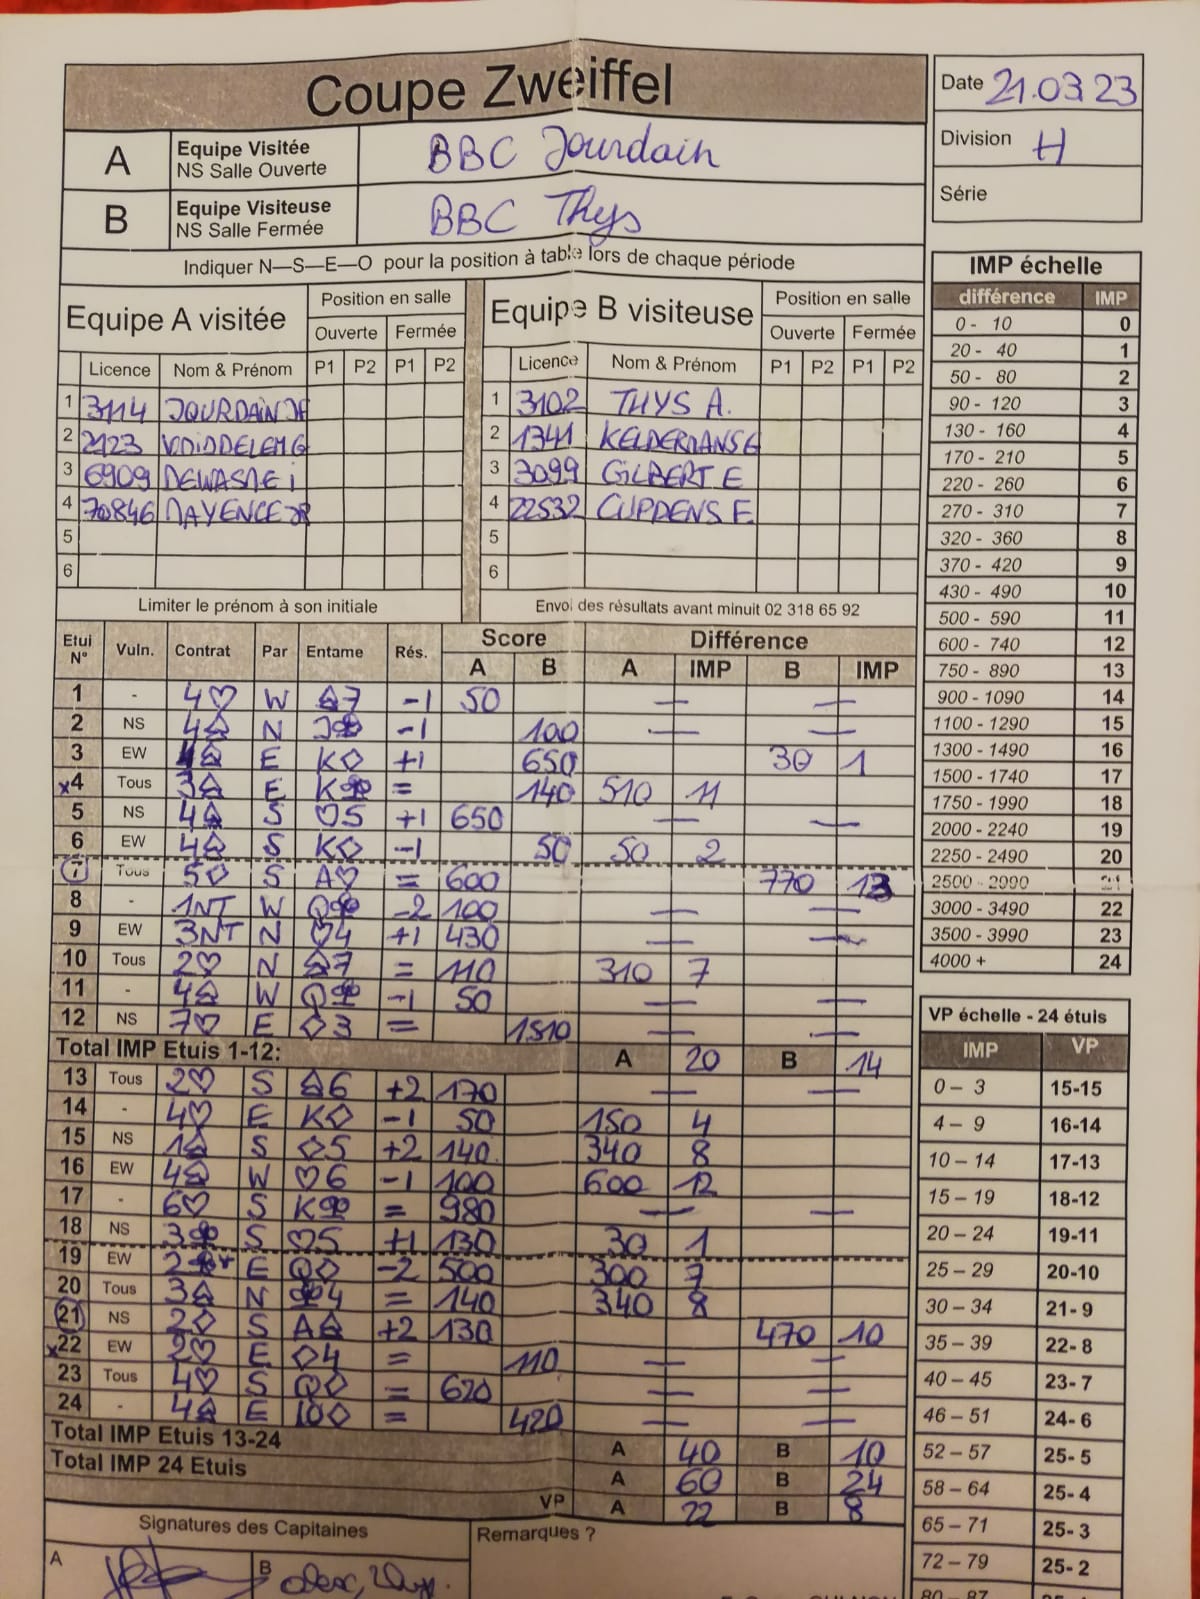 Coupe Zweiffel
Date 21.03.23
Division H
Série
A Equipe Visitée NS Salle Ouverte BBC Jourdain
B Equipe Visiteuse NS Salle Fermée BBC Thys
Indiquer N—S—E—O pour la position à table lors de chaque période
Equipe A visitée Position en salle Equipe B visiteuse Position en salle
Ouverte Fermée Ouverte Fermée
Licence Nom & Prénom P1 P2 P1 P2 Licence Nom & Prénom P1 P2 P1 P2
1 3114 JOURDAIN 1 3102 THYS A.
2 2123 2 1341
3 6909 3 3099 GILBERT E
4 70846 MAYENCE 4 22532
5 5
6 6
Limiter le prénom à son initiale Envoi des résultats avant minuit 02 318 65 92
Etui N° Vuln. Contrat Par Entame Rés. Score Différence
A B A IMP B IMP
1 - 4♡ W ♤7 -1 50 — —
2 NS 4♤ N J♧ -1 100 — —
3 EW 4♤ E K◇ +1 650 30 1
x4 Tous 3♤ E K♧ = 140 510 11
5 NS 4♤ S ♡5 +1 650 — —
6 EW 4♤ S K◇ -1 50 50 2
7 Tous 5◇ S A♡ = 600 770 13
8 - 1NT W Q♧ -2 100 — —
9 EW 3NT N ♡4 +1 430 — —
10 Tous 2♡ N ♤7 = 110 310 7
11 - 4♤ W Q♧ -1 50 — —
12 NS 7♡ E ◇3 = 1510 — —
Total IMP Etuis 1-12: A 20 B 14
13 Tous 2♡ S ♤6 +2 170 — —
14 - 4♡ E K◇ -1 50 150 4
15 NS 1♤ S ◇5 +2 140 340 8
16 EW 4♤ W ♡6 -1 100 600 12
17 - 6♡ S K♧ = 980 — —
18 NS 3♧ S ♡5 +1 130 30 1
19 EW E Q◇ -2 500 300 7
20 Tous 3♤ N ♧4 = 140 340 8
21 NS 2◇ S A♤ +2 130 470 10
x22 EW 2♡ E ◇4 = 110 — —
23 Tous 4♡ S Q◇ = 620 — —
24 - 4♤ E 10◇ = 420 — —
Total IMP Etuis 13-24 A 40 B 10
Total IMP 24 Etuis A 60 B 24
VP A 22 B 8
Signatures des Capitaines Remarques ?
A B
IMP échelle
différence IMP
0 - 10 0
20 - 40 1
50 - 80 2
90 - 120 3
130 - 160 4
170 - 210 5
220 - 260 6
270 - 310 7
320 - 360 8
370 - 420 9
430 - 490 10
500 - 590 11
600 - 740 12
750 - 890 13
900 - 1090 14
1100 - 1290 15
1300 - 1490 16
1500 - 1740 17
1750 - 1990 18
2000 - 2240 19
2250 - 2490 20
2500 - 2990 21
3000 - 3490 22
3500 - 3990 23
4000 + 24
VP échelle - 24 étuis
IMP VP
0 – 3 15-15
4 – 9 16-14
10 – 14 17-13
15 – 19 18-12
20 – 24 19-11
25 – 29 20-10
30 – 34 21- 9
35 – 39 22- 8
40 – 45 23- 7
46 – 51 24- 6
52 – 57 25- 5
58 – 64 25- 4
65 – 71 25- 3
72 – 79 25- 2